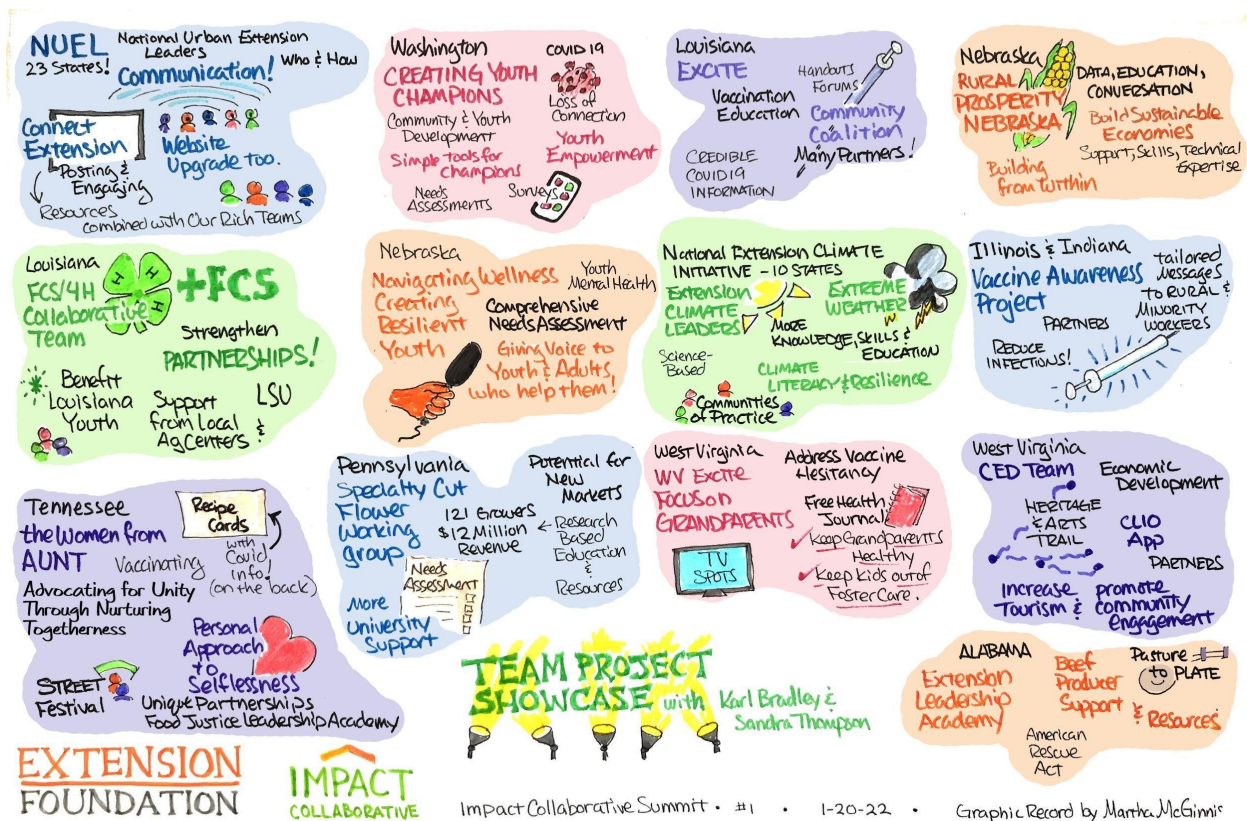 NUEL
23 States!
National Urban Extension
Leaders
Communication!
Who & How
Connect
Extension
Website
Upgrade too.
Posting &
Engaging
Resources
combined with Our Rich Teams
Washington
CREATING YOUTH
CHAMPIONS
COVID 19
Loss of
Connection
Community & Youth
Development
Simple tools for
champions
Youth
Empowerment
Needs
Assessments
Surveys
Louisiana
EXCITE
Handouts
Forums
Vaccination
Education
Community
Coalition
Many Partners!
CREDIBLE
COVID19
INFORMATION
Nebraska
RURAL
PROSPERITY
NEBRASKA
DATA, EDUCATION,
CONVERSATION
Build Sustainable
Economies
Support, Skills, Technical
Expertise
Building
from within
Louisiana
FCS/4H
Collaborative
Team
H H
H H
+FCS
Strengthen
PARTNERSHIPS!
Benefit
Louisiana
Youth
Support
from Local &
AgCenters
LSU
Nebraska
Navigating Wellness
Creating
Resilient
Youth
Youth
Mental Health
Comprehensive
Needs Assessment
Giving Voice to
Youth & Adults
who help them!
National Extension CLIMATE
INITIATIVE - 10 STATES
Extension
CLIMATE
LEADERS
EXTREME
WEATHER
MORE
KNOWLEDGE, SKILLS &
EDUCATION
Science-
Based
CLIMATE
LITERACY & Resilience
Communities
of Practice
Illinois & Indiana
Vaccine Awareness
Project
tailored
messages
to RURAL &
MINORITY
WORKERS
PARTNERS
REDUCE
INFECTIONS!
Tennessee
the Women from
AUNT
Vaccinating
Recipe
Cards
with
Covid
info!
(on the back)
Advocating for Unity
Through Nurturing
Togetherness
Personal
Approach
to
Selflessness
STREET
Festival
Unique Partnerships
Food Justice Leadership Academy
Pennsylvania
Specialty Cut
Flower
Working
group
121 Growers
$12 Million
Revenue
Potential for
New
Markets
Research
Based
Education
&
Resources
Needs
Assessment
More
University
Support
West Virginia
WV Excite
Focus on
GRANDPARENTS
Address Vaccine
Hesitancy
Free Health
Journal
Keep Grandparents
Healthy
Keep kids out of
Foster Care.
TV
SPOTS
West Virginia
CED Team
Economic
Development
HERITAGE
& ARTS
TRAIL
CLIO
App
PARTNERS
Increase
Tourism &
promote
community
engagement
ALABAMA
Extension
Leadership
Academy
Beef
Producer
Support
& Resources
Pasture
to PLATE
American
Rescue
Act
TEAM PROJECT
SHOWCASE with
Karl Bradley &
Sandra Thompson
EXTENSION
FOUNDATION
IMPACT
COLLABORATIVE
Impact Collaborative Summit • #1 • 1-20-22 • Graphic Record by Martha McGinnis